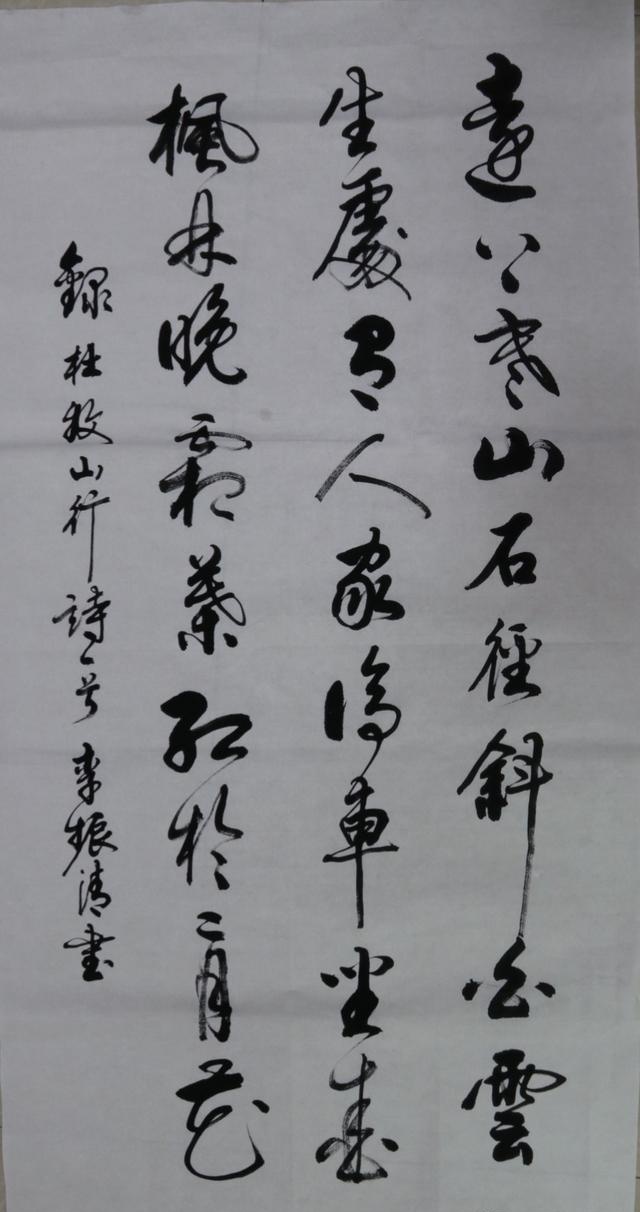 遠上寒山石徑斜白雲
生處有人家停車坐愛
楓林晚霜葉紅於二月花
錄杜牧山行詩一首 李振清書